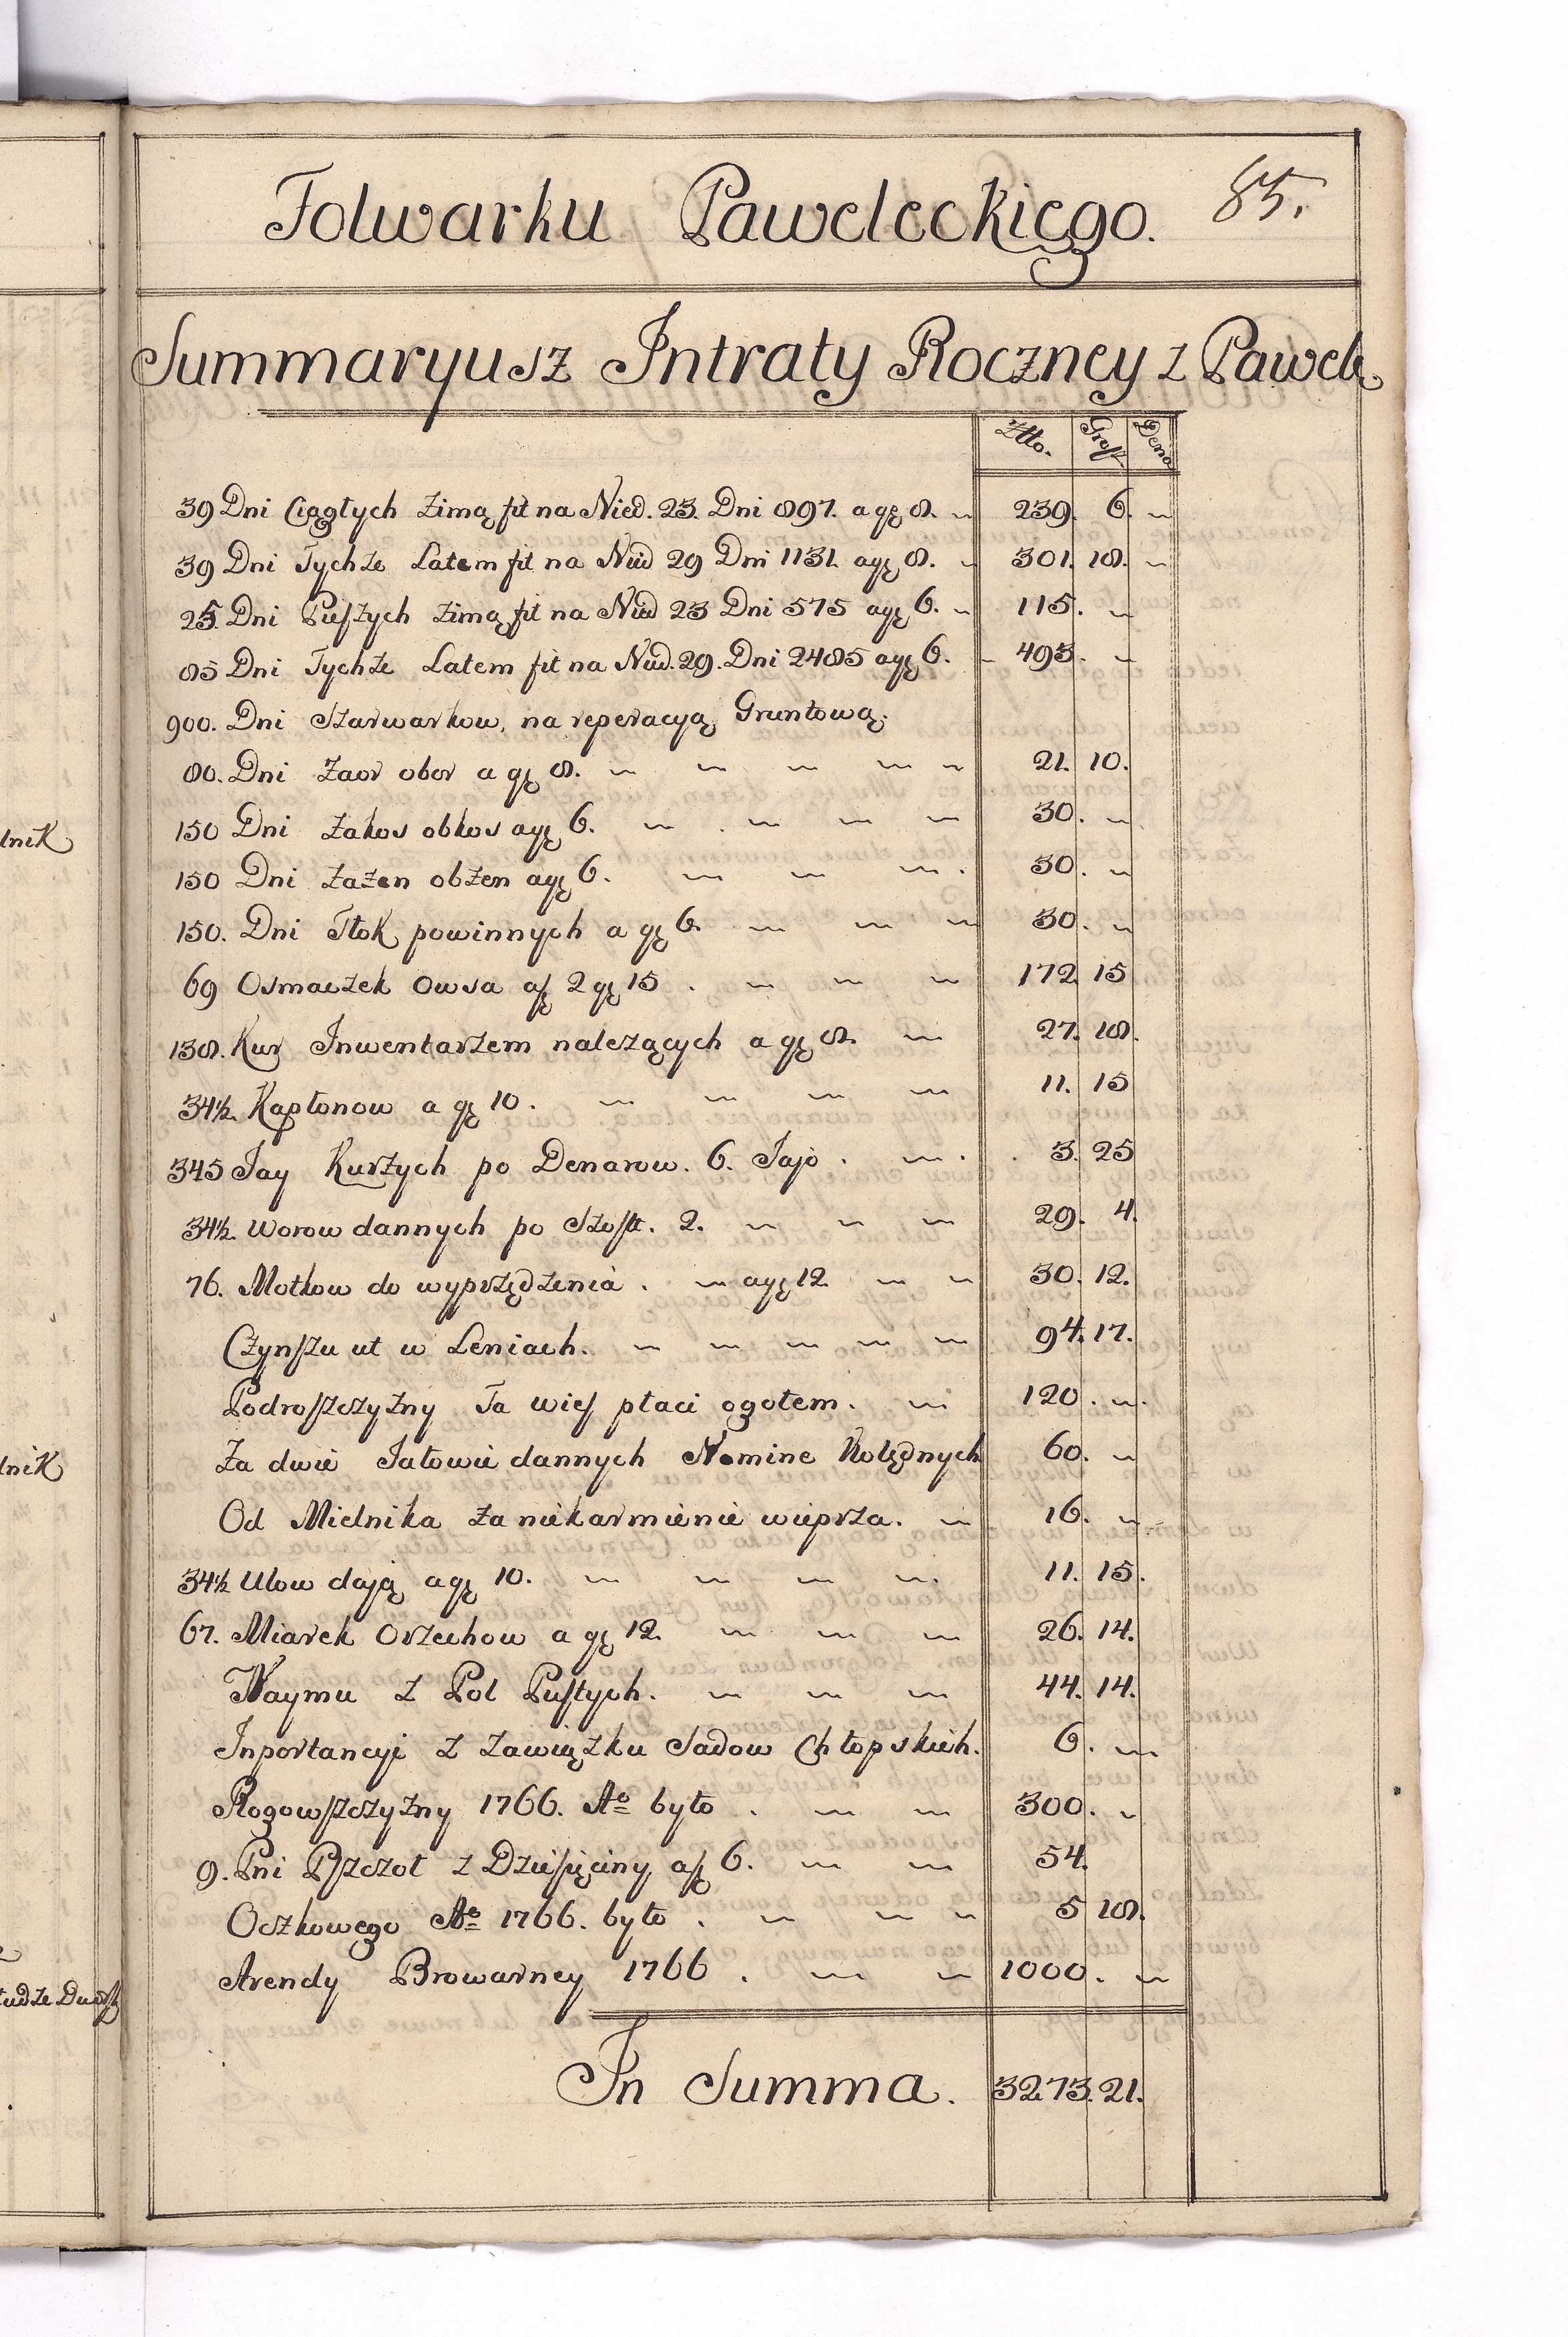 Folwarku Paweleckiego. 85.
Summaryusz Intraty Roczney z Pawel.
Złło. Groſz Dena
39 Dni Ciągłych zimą fit na Nied. 23. Dni 897. a gę 8. 239. 6.
39 Dni Tychże Latem fit na Nied 29 Dni 1131. a gę 8. 301. 18.
25. Dni Pieſzych zimą fit na Nied 23 Dni 575 a gę 6. 115.
85 Dni Tychże Latem fit na Nied. 29. Dni 2485 a gę 6. 493.
900. Dni Szarwarkow, na reperacyą Gruntową.
80. Dni zaor obor a gę 8. 21. 10.
150 Dni zakos obkos a gę 6. 30.
150 Dni zażen obżen a gę 6. 30.
150. Dni Tłok powinnych a gę 6. 30.
69 Osmaczek owsa aſ 2 gę 15. 172 15
138. Kur Inwentarzem należących a gę 8. 27. 18.
34½. Kapłonow a gę 10. 11. 15
345 Jay Kurzych po Denarow. 6. Jajo. 3. 25
34½. worow dannych po Szoſt. 2. 29. 4.
76. Motkow do wyprzędzenia. a gę 12. 30. 12.
Czynſzu ut w Leniach. 94. 17.
Podroſzczyzny Ta wieſ płaci ogołem. 120.
Za dwie Jałowie dannych Nomine Kolędnych 60.
Od Mielnika za niekarmienie wieprza. 16.
34½ Ulow dają a gę 10. 11. 15.
67. Miarek Orzechow a gę 12. 26. 14.
Naymu z Pol Puſtych. 44. 14.
Inportancyi z zawiązku Sadow Chłopskich. 6.
Rogowſzczyzny 1766. Ao było. 300.
9. Pni Pſzczoł z Dzieſięciny aſ 6. 54.
Oczkowego Ao 1766. było. 5 18.
Arendy Browarney 1766. 1000.
In Summa. 3273. 21.
lnik
lnik